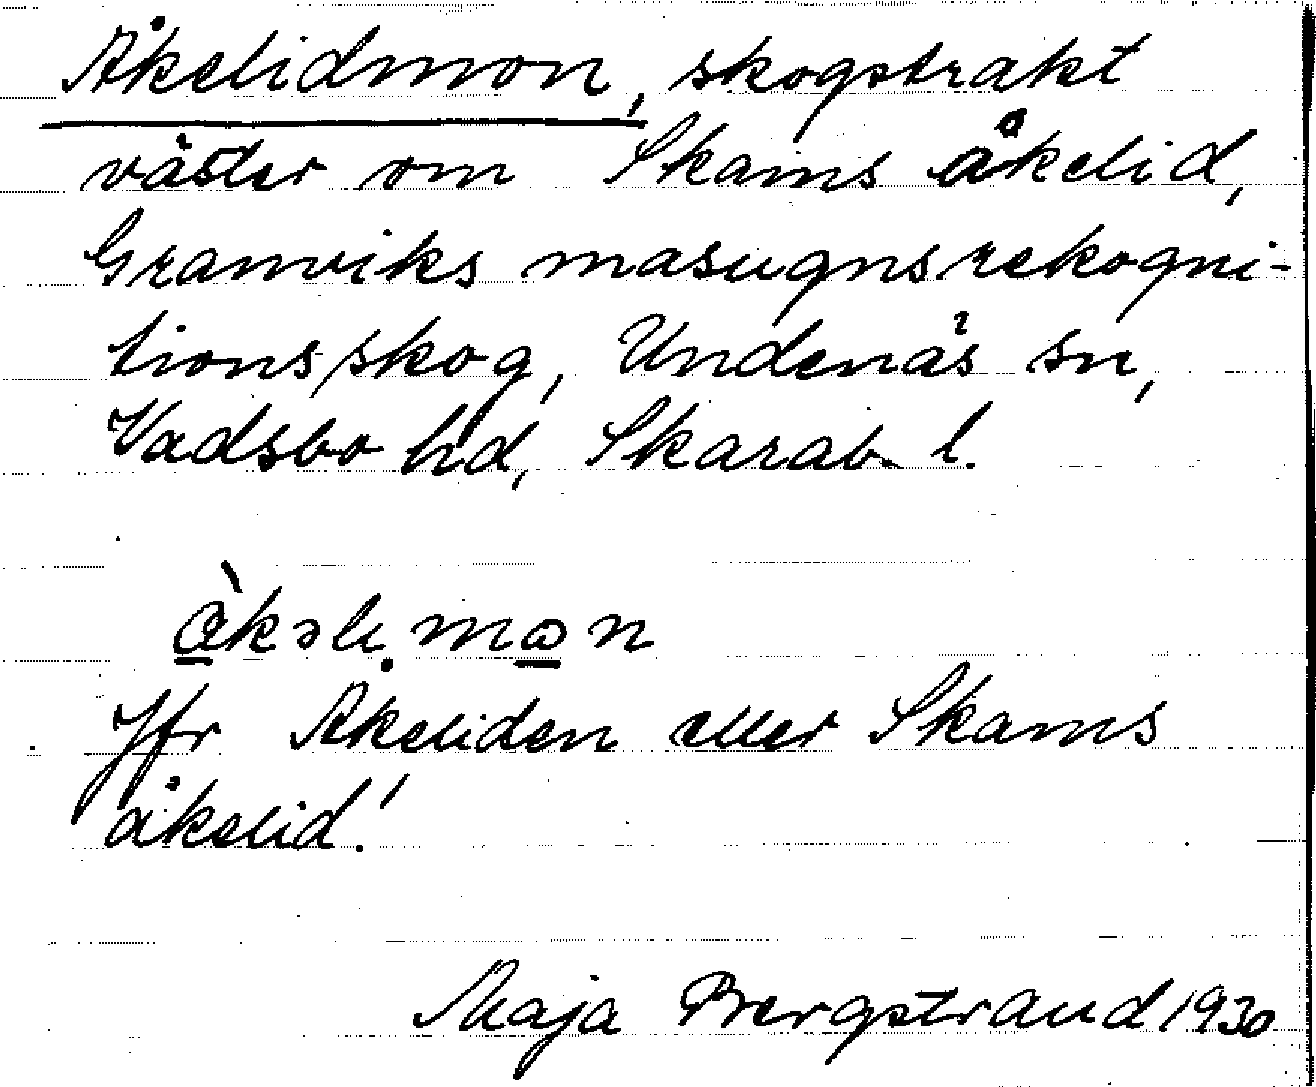 Åkelidmon, skogstrakt
väster om Skams åkelid,
Granviks masugnsrekogni-
tionsskog, Undenäs sn,
Vadsbo hd, Skarab. l.
å̀kəlı̣mωn
Jfr Åkeliden eller Skams
åkelid!
Maja Bergstrand 1930